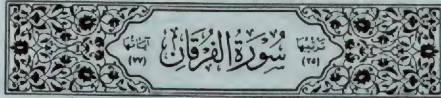 ترتيبها (٢٥) سُورَةُ الْفُرْقَانِ آياتها (٧٧)